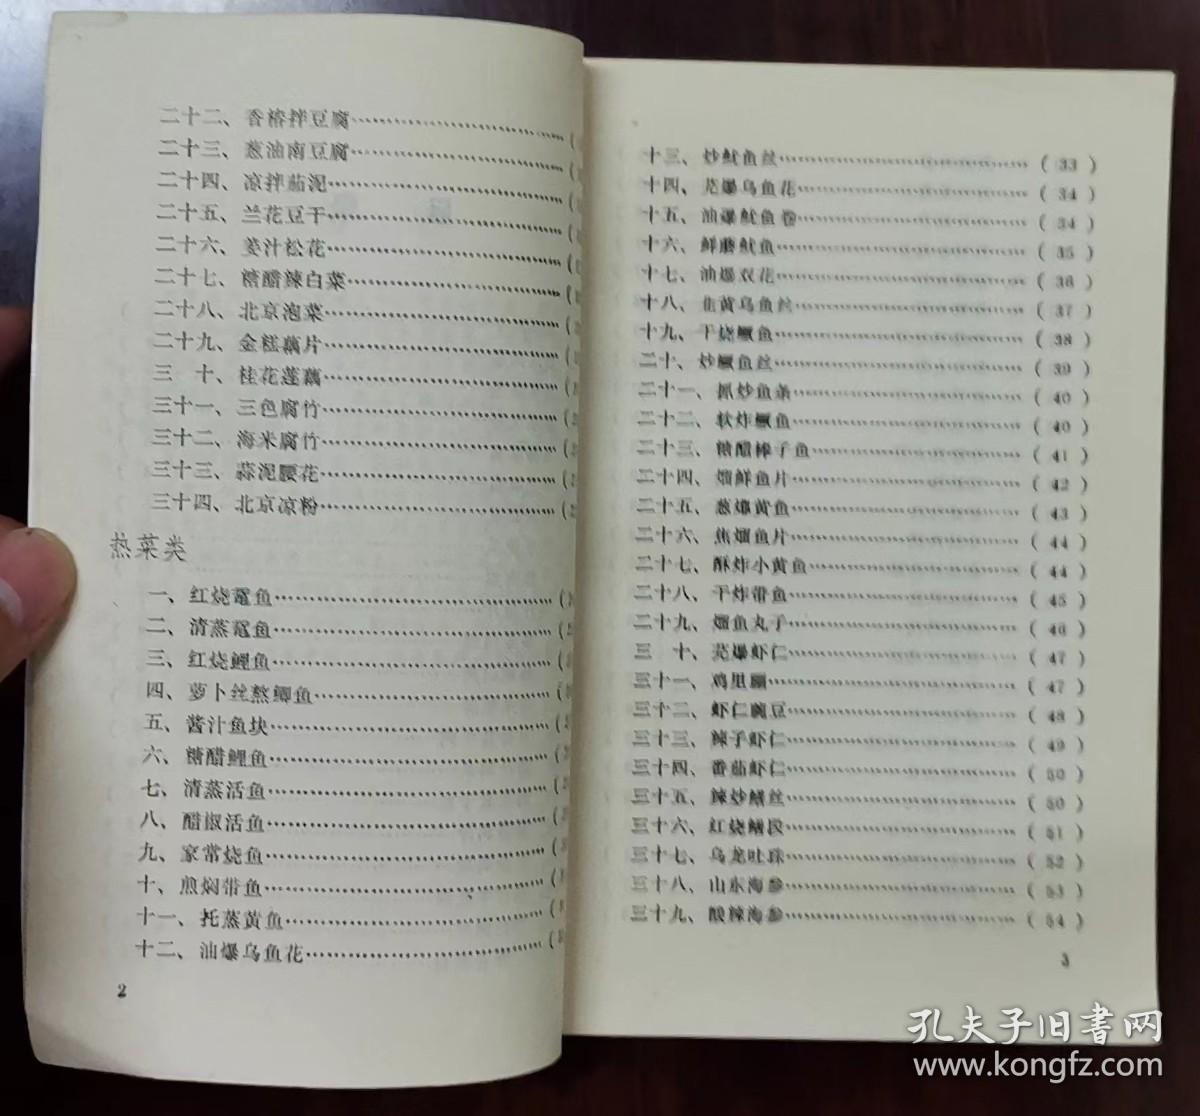 二十二、香椿拌豆腐……………………(
二十三、葱油南豆腐……………………(
二十四、凉拌茄泥……………………(
二十五、兰花豆干……………………(
二十六、姜汁松花……………………(
二十七、糖醋辣白菜……………………(
二十八、北京泡菜……………………(
二十九、金糕藕片……………………(
三　十、桂花莲藕……………………(
三十一、三色腐竹……………………(
三十二、海米腐竹……………………(
三十三、蒜泥腰花……………………(
三十四、北京凉粉……………………(
热菜类
一、红烧鼋鱼……………………(
二、清蒸鼋鱼……………………(
三、红烧鲤鱼……………………(
四、萝卜丝熬鲫鱼……………………(
五、酱汁鱼块……………………(
六、糖醋鲤鱼……………………(
七、清蒸活鱼……………………(
八、醋椒活鱼……………………(
九、家常烧鱼……………………(
十、煎焖带鱼……………………(
十一、托蒸黄鱼……………………(
十二、油爆乌鱼花……………………(
2
十三、炒鱿鱼丝……………………( 33 )
十四、芫爆乌鱼花……………………( 34 )
十五、油爆鱿鱼卷……………………( 34 )
十六、鲜蘑鱿鱼……………………( 35 )
十七、油爆双花……………………( 36 )
十八、韭黄乌鱼丝……………………( 37 )
十九、干烧鳜鱼……………………( 38 )
二十、炒鳜鱼丝……………………( 39 )
二十一、抓炒鱼条……………………( 40 )
二十二、软炸鳜鱼……………………( 40 )
二十三、糖醋棒子鱼……………………( 41 )
二十四、熘鲜鱼片……………………( 42 )
二十五、葱爆黄鱼……………………( 43 )
二十六、焦熘鱼片……………………( 44 )
二十七、酥炸小黄鱼……………………( 44 )
二十八、干炸带鱼……………………( 45 )
二十九、熘鱼丸子……………………( 46 )
三　十、芫爆虾仁……………………( 47 )
三十一、鸡里蹦……………………( 47 )
三十二、虾仁豌豆……………………( 48 )
三十三、辣子虾仁……………………( 49 )
三十四、番茄虾仁……………………( 50 )
三十五、辣炒鳝丝……………………( 50 )
三十六、红烧鳝段……………………( 51 )
三十七、乌龙吐珠……………………( 52 )
三十八、山东海参……………………( 53 )
三十九、酸辣海参……………………( 54 )
3
孔夫子旧书网
www.kongfz.com